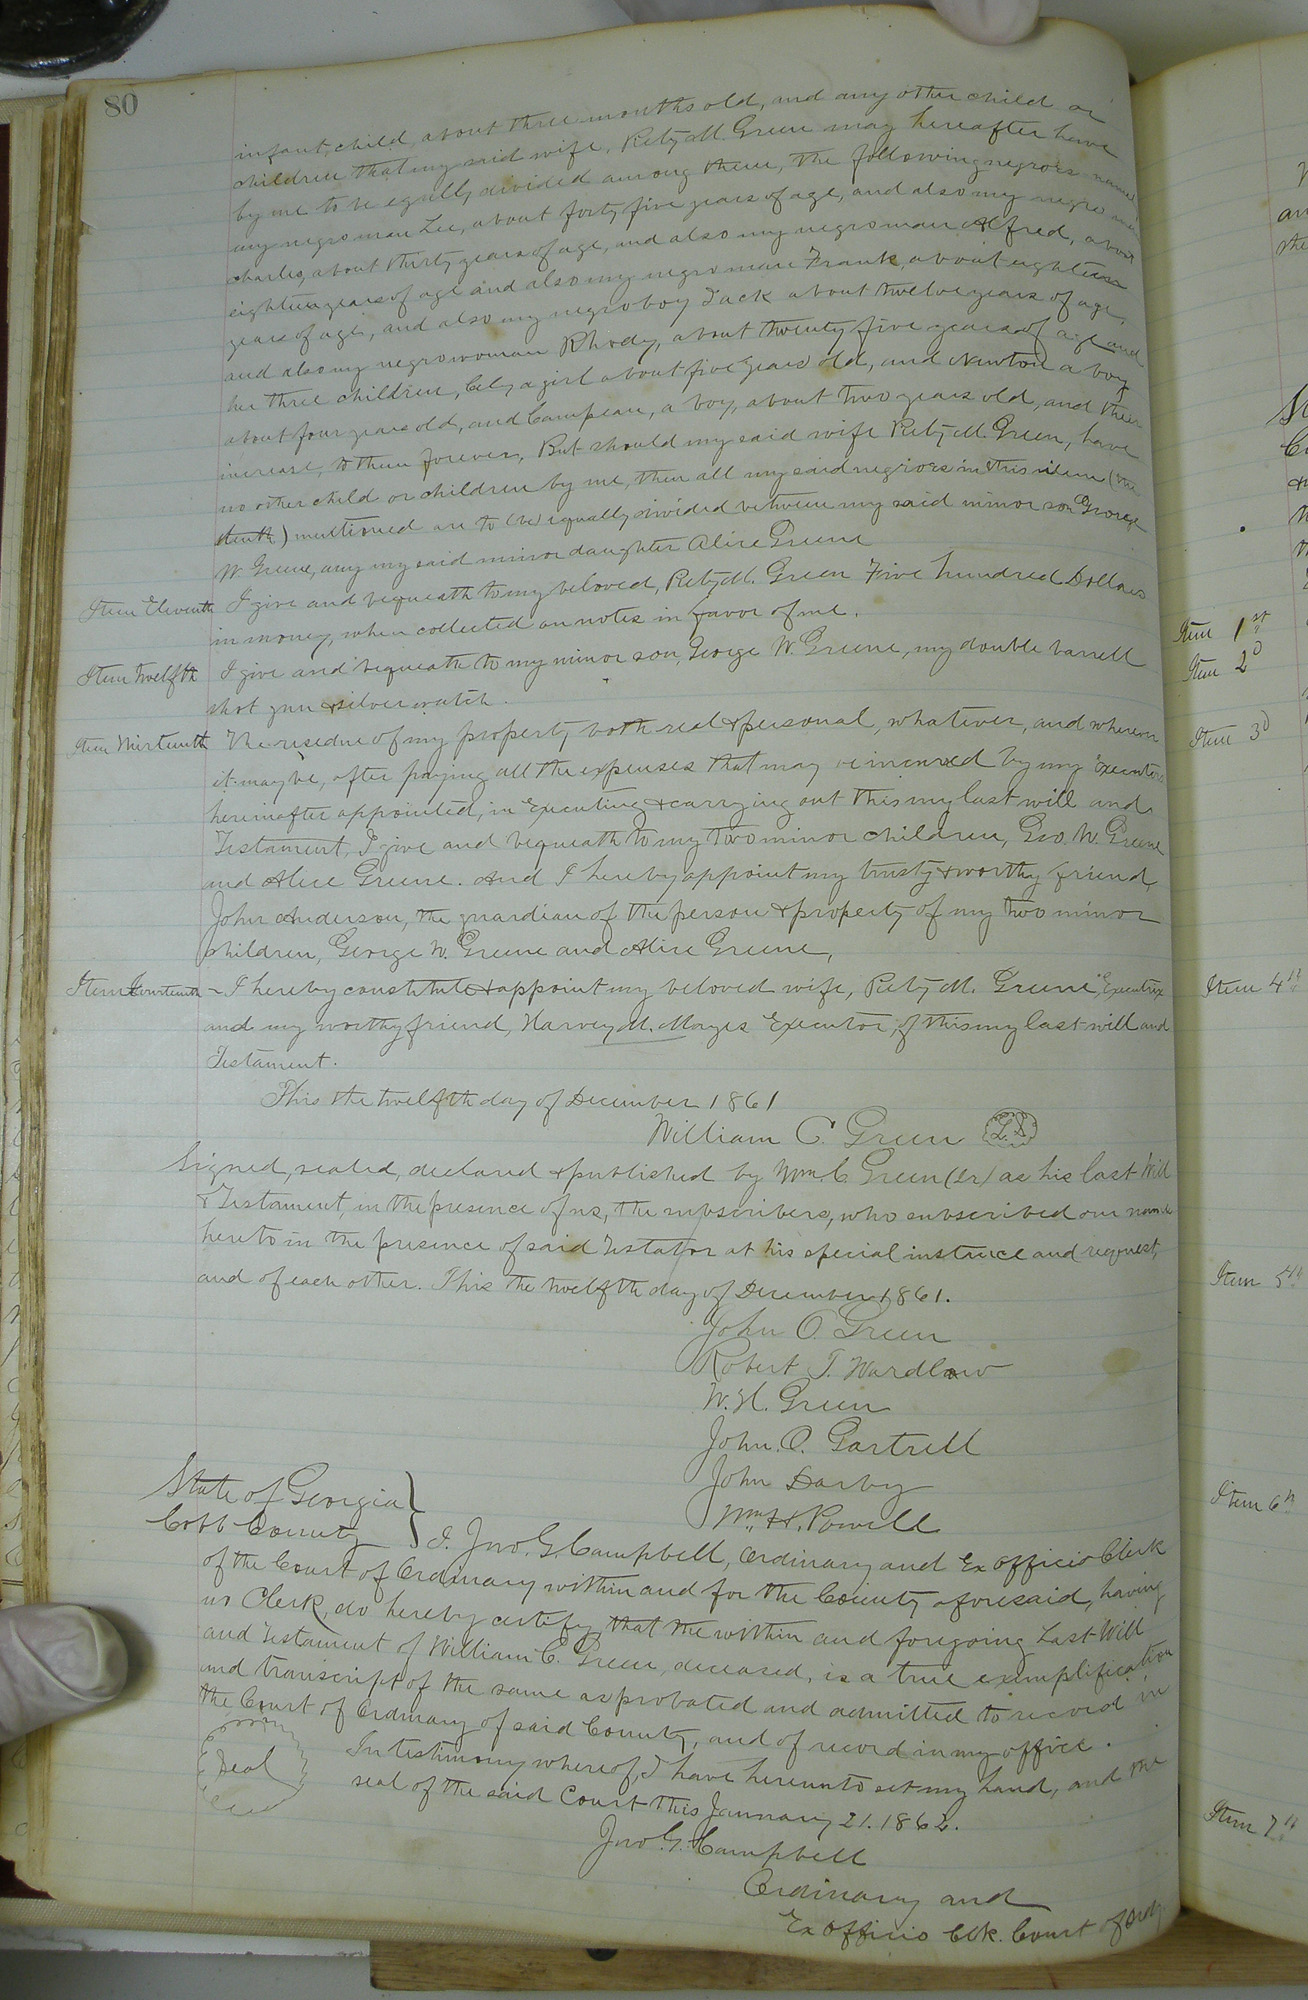 80
infant, child, about three months old, and any other child or
children that my said wife, Pety M. Green may hereafter have
by me to be equally divided among them, the following negroes named,
my negro man Lee, about forty five years of age, and also my negro man
charles, about thirty years of age, and also my negro man Alfred, about
eighteen years of age and also my negro man Frank, about eighteen
years of age, and also my negro boy Jack about twelve years of age,
and also my negro woman Rhody, about twenty five years of age and
her three children, Cely a girl about five years old, and Newton a boy
about four years old, and Campean, a boy, about two years old, and their
increase, to them forever, But should my said wife Pety M. Green, have
no other child or children by me, then all my said negroes in this item (the
tenth) mentioned are to (be) equally divided between my said minor son George
W. Greene, any my said minor daughter Alice Greene
Item Eleventh I give and bequeath to my beloved, Pety M. Green Five hundred Dollars
in money, when collected on notes in favor of me.
Item twelfth I give and bequeath to my minor son, George W. Greene, my double barrell
shot gun & silver watch.
Item thirteenth The residue of my property both real & personal, whatever, and wherever
it may be, after paying all the expenses that may be incurred by my Executors
hereinafter appointed, in Executing & carrying out this my last will and
Testament, I give and bequeath to my two minor children, Geo. W. Greene
and Alice Greene. And I hereby appoint my trusty & worthy friend
John Anderson, the guardian of the person & property of my two minor
children, George W. Greene and Alice Greene,
Item fourteenth ~ I hereby constitute & appoint my beloved wife, Pety M. Greene, Executrix
and my worthy friend, Harvey M. Mayes Executor, of this my last will and
Testament.
This the twelfth day of December 1861
William C. Green L.S
Signed, sealed, declared & published by Wm. C. Green (Sr) as his last Will
& Testament, in the presence of us, the subscribers, who subscribed our names
hereto in the presence of said Testator at his special instance and request,
and of each other. This the twelfth day of December 1861.
John O. Green
Robert T. Wardlaw
W. H. Green
John. O. Gartrell
John Darby
Wm. H. Powell
State of Georgia }
Cobb County } I. Jno. G. Campbell, Ordinary and Ex officio Clerk
of the Court of Ordinary within and for the County aforesaid, having
no Clerk, do hereby certify that the within and foregoing Last Will
and Testament of William C. Green, deceased, is a true exemplification
and transcript of the same as probated and admitted to record in
the Court of Ordinary of said County, and of record in my office.
Seal
In testimony whereof, I have hereunto set my hand, and the
seal of the said Court this January 21. 1862.
Jno. G. Campbell
Ordinary and
Ex officio Clk. Court of Ordy
Item 1st
Item 2d
Item 3d
Item 4th
Item 5th
Item 6th
Item 7th